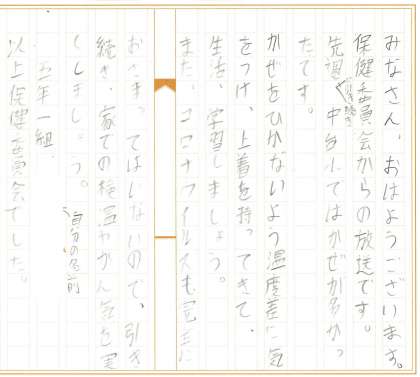 みなさん、おはようございます。
保健委員会からの放送です。
先週に引き続き
中台小ではかぜが多かっ
たです。
かぜをひかないよう温度差に気
をつけ、上着を持ってきて、
生活、学習しましょう。
また、コロナウイルスも完全に
おさまってはいないので、引き
続き、家での検温やかん気を実
しましょう。
五年一組、
自分の名前
以上保健委員会でした。